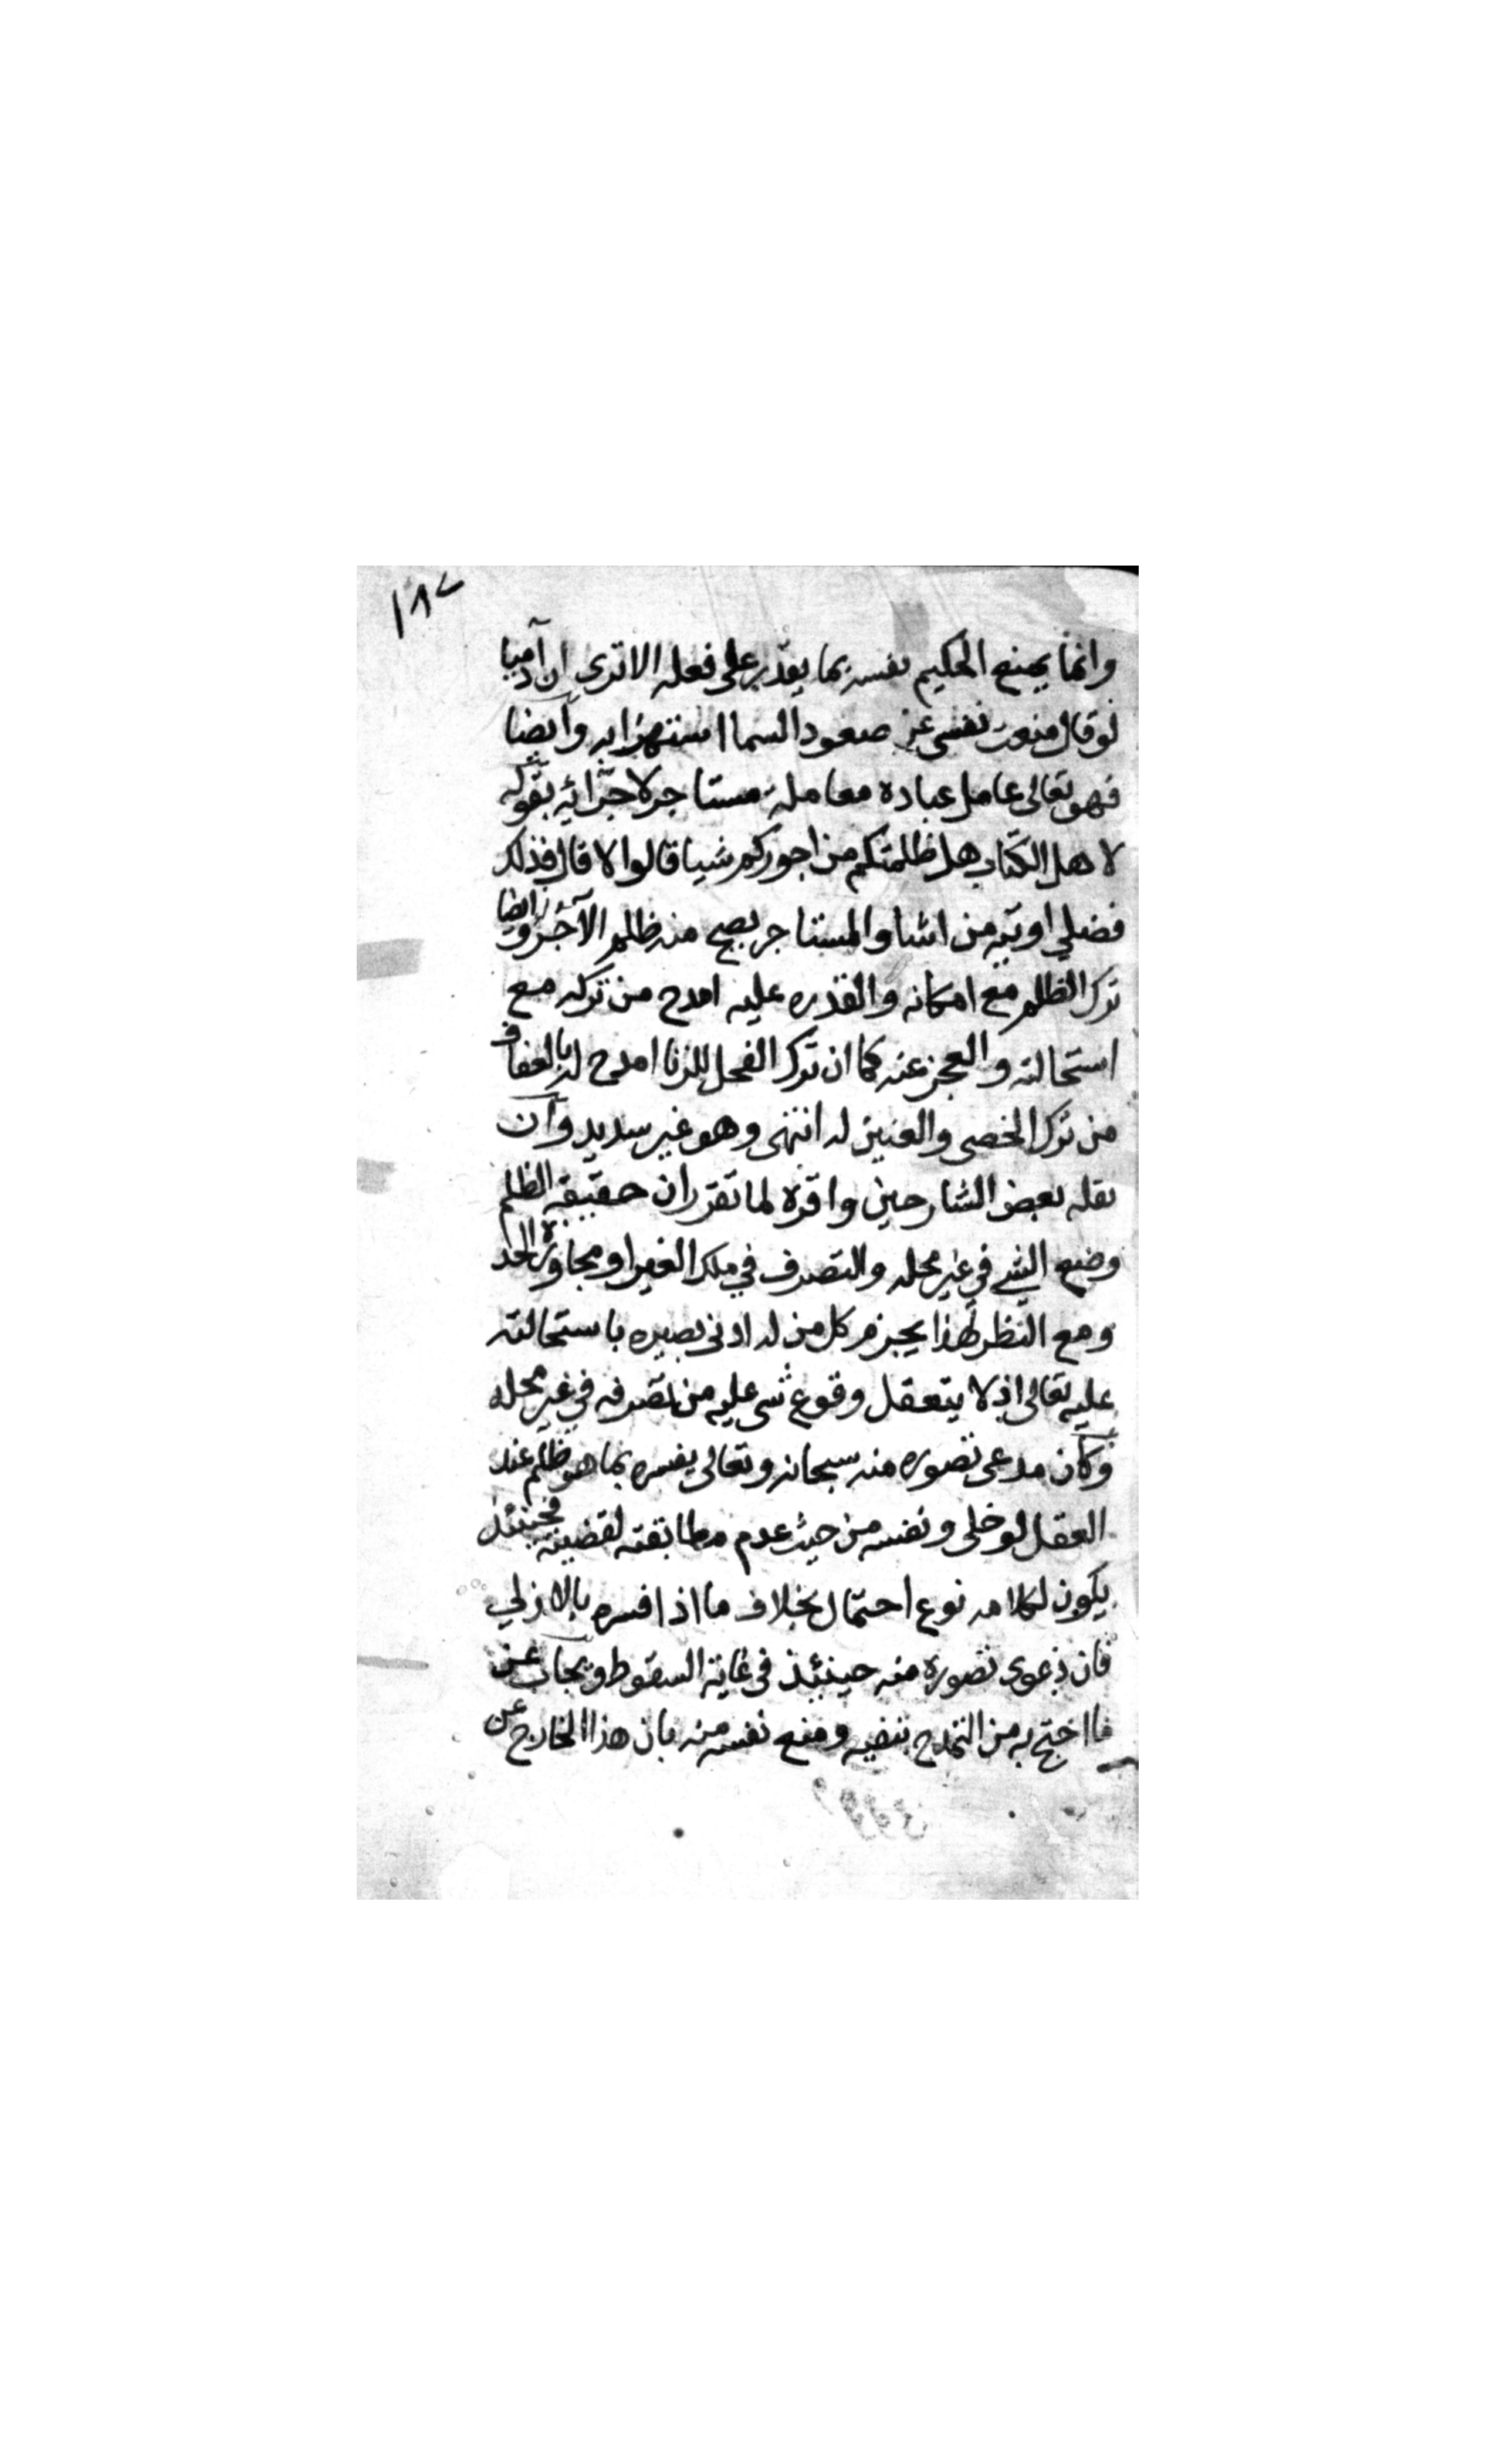 ١٨٧
وانما يمنع الحكيم نفسه بما يقدر على فعله الا ترى ان آدميا
لو قال منعت نفسى عن صعود السما استهزابه وايضا
فهو تعالى عامل عباده معاملة مستاجر لاجرائه بقوله
لاهل الكتاب هل ظلمتكم من اجوركم شيا قالوا لا قال فذلك
فضلي اوتيه من اشا والمستاجر يصح منه ظلم الآجر وايضا
ترك الظلم مع امكانه والقدره عليه امدح من تركه مع
استحالته والعجز عنه كما ان ترك الفحل للزنا امدح له بالعفاف
من ترك الخصى والعنين له انتهى وهو غير سديد وان
نقله بعض الشارحين واقره لما تقرر ان حقيقة الظلم
وضع الشي في غير محله والتصرف في ملك الغير او مجاوزة الحد
ومع النظر لهذا يجزم كل من له ادنى بصيره باستحالته
عليه تعالى اذ لا يتعقل وقوع شى عليه من تصرفه في غير محله
وكان مدعى تصوره منه سبحانه وتعالى يفسره بما هو ظلم عند
العقل لو خلى ونفسه من حيث عدم مطابقته لقضيته فحينئذ
يكون لكلامه نوع احتمال بخلاف ما اذا فسره بالازلي
فان دعوى تصوره منه حينئذ فى غاية السقوط ويجاب عن
ما احتج به من التمدح بنفيه ومنع نفسه منه بان هذا الخارج عن